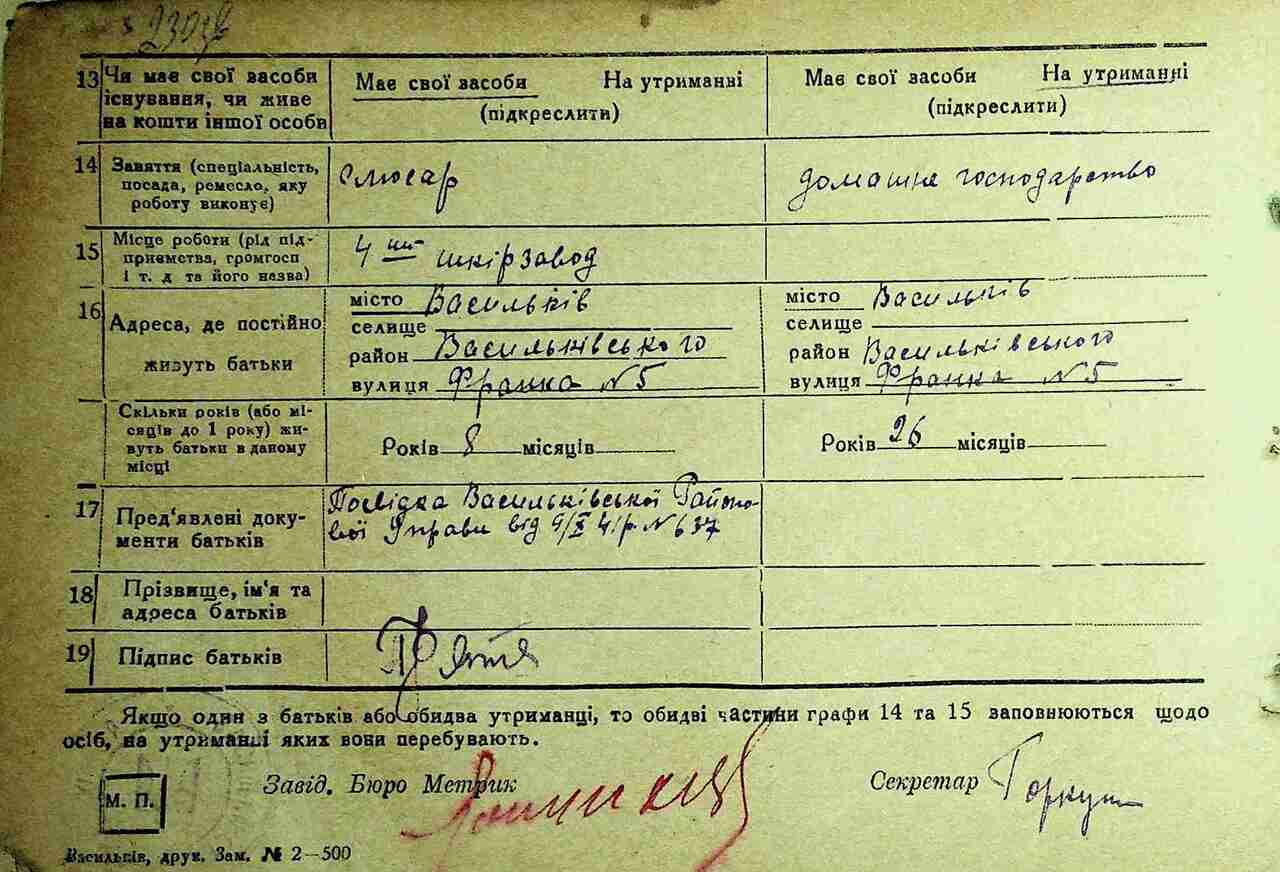 13 Чи має свої засоби існування, чи живе на кошти іншої особи
Має свої засоби На утриманні
(підкреслити)
Має свої засоби На утриманні
(підкреслити)
14 Заняття (спеціальність, посада, ремесло, яку роботу виконує)
Слюсар
домашнє господарство
15 Місце роботи (рід підприємства, громгосп і т. д та його назва)
4 ий шкірзавод
16 Адреса, де постійно живуть батьки
місто Васильків
селище
район Васильківського
вулиця Франка N5
місто Васильків
селище
район Васильківського
вулиця Франка N5
Скільки років (або місяців до 1 року) живуть батьки в даному місці
Років 8 місяців
Років 26 місяців
17 Пред'явлені документи батьків
Посвідка Васильківської Районової Управи від 9/X 41р. N 637
18 Прізвище, ім'я та адреса батьків
19 Підпис батьків
Якщо один з батьків або обидва утриманці, то обидві частини графи 14 та 15 заповнюються щодо
осіб, на утриманні яких вони перебувають.
М. П.
Завід. Бюро Метрик
Секретар Горкуш
Васильків, друк. Зам. № 2—500